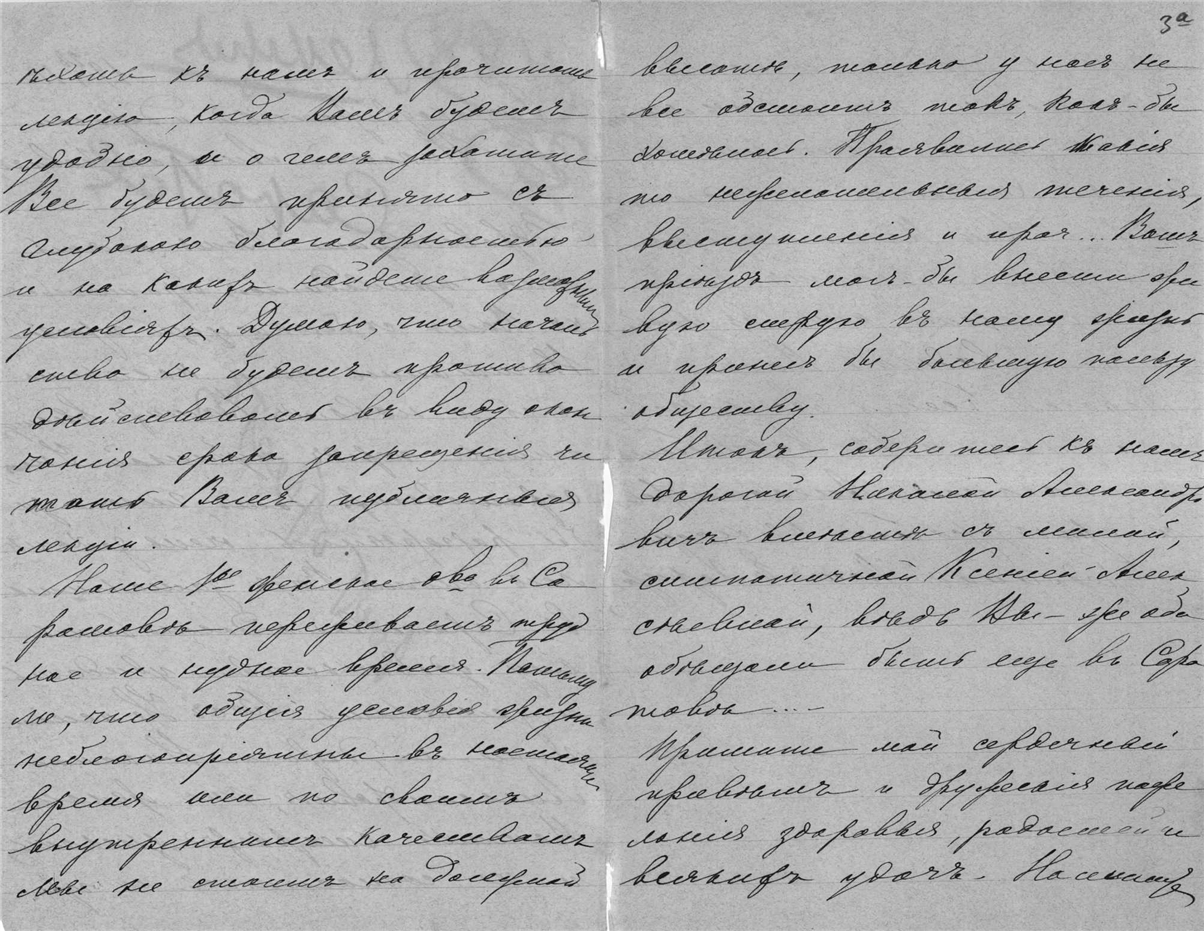 ѣхать къ намъ и прочитать
лекцію, когда Вамъ будетъ
удобно, и о чемъ захотите
Все будетъ принято съ
глубокою благодарностью
и на какихъ найдете возможными
условіяхъ. Думаю, что началь
ство не будетъ противо
дѣйствовать въ виду окон
чанія срока запрещенія чи
тать Вамъ публичныя
лекціи.
Наше 1ое женское о-во въ Са
ратовѣ переживаетъ труд
ное и нудное время. Потому
ли, что общія условія жизни
неблагопріятны въ настоящее
время или по своимъ
внутреннимъ качествамъ
мы не стоимъ на должной
3а
высотѣ, только у насъ не
все обстоитъ такъ, какъ-бы
хотѣлось. Проявились какія
то нежелательныя теченія,
выступленія и проч... Вашъ
пріѣздъ могъ-бы внести жи
вую струю въ нашу жизнь
и принесъ бы большую пользу
обществу.
Итакъ, соберитесь къ намъ
дорогой Николай Александро
вичъ вмѣстѣ съ милой,
симпатичной Ксеніей Алек
сѣевной, вѣдь Вы-же оба
обѣщали быть еще въ Сара
товѣ ....
Примите мой сердечный
привѣтъ и дружескія поже
ланія здоровья, радостей и
всякихъ удачъ. Напишите